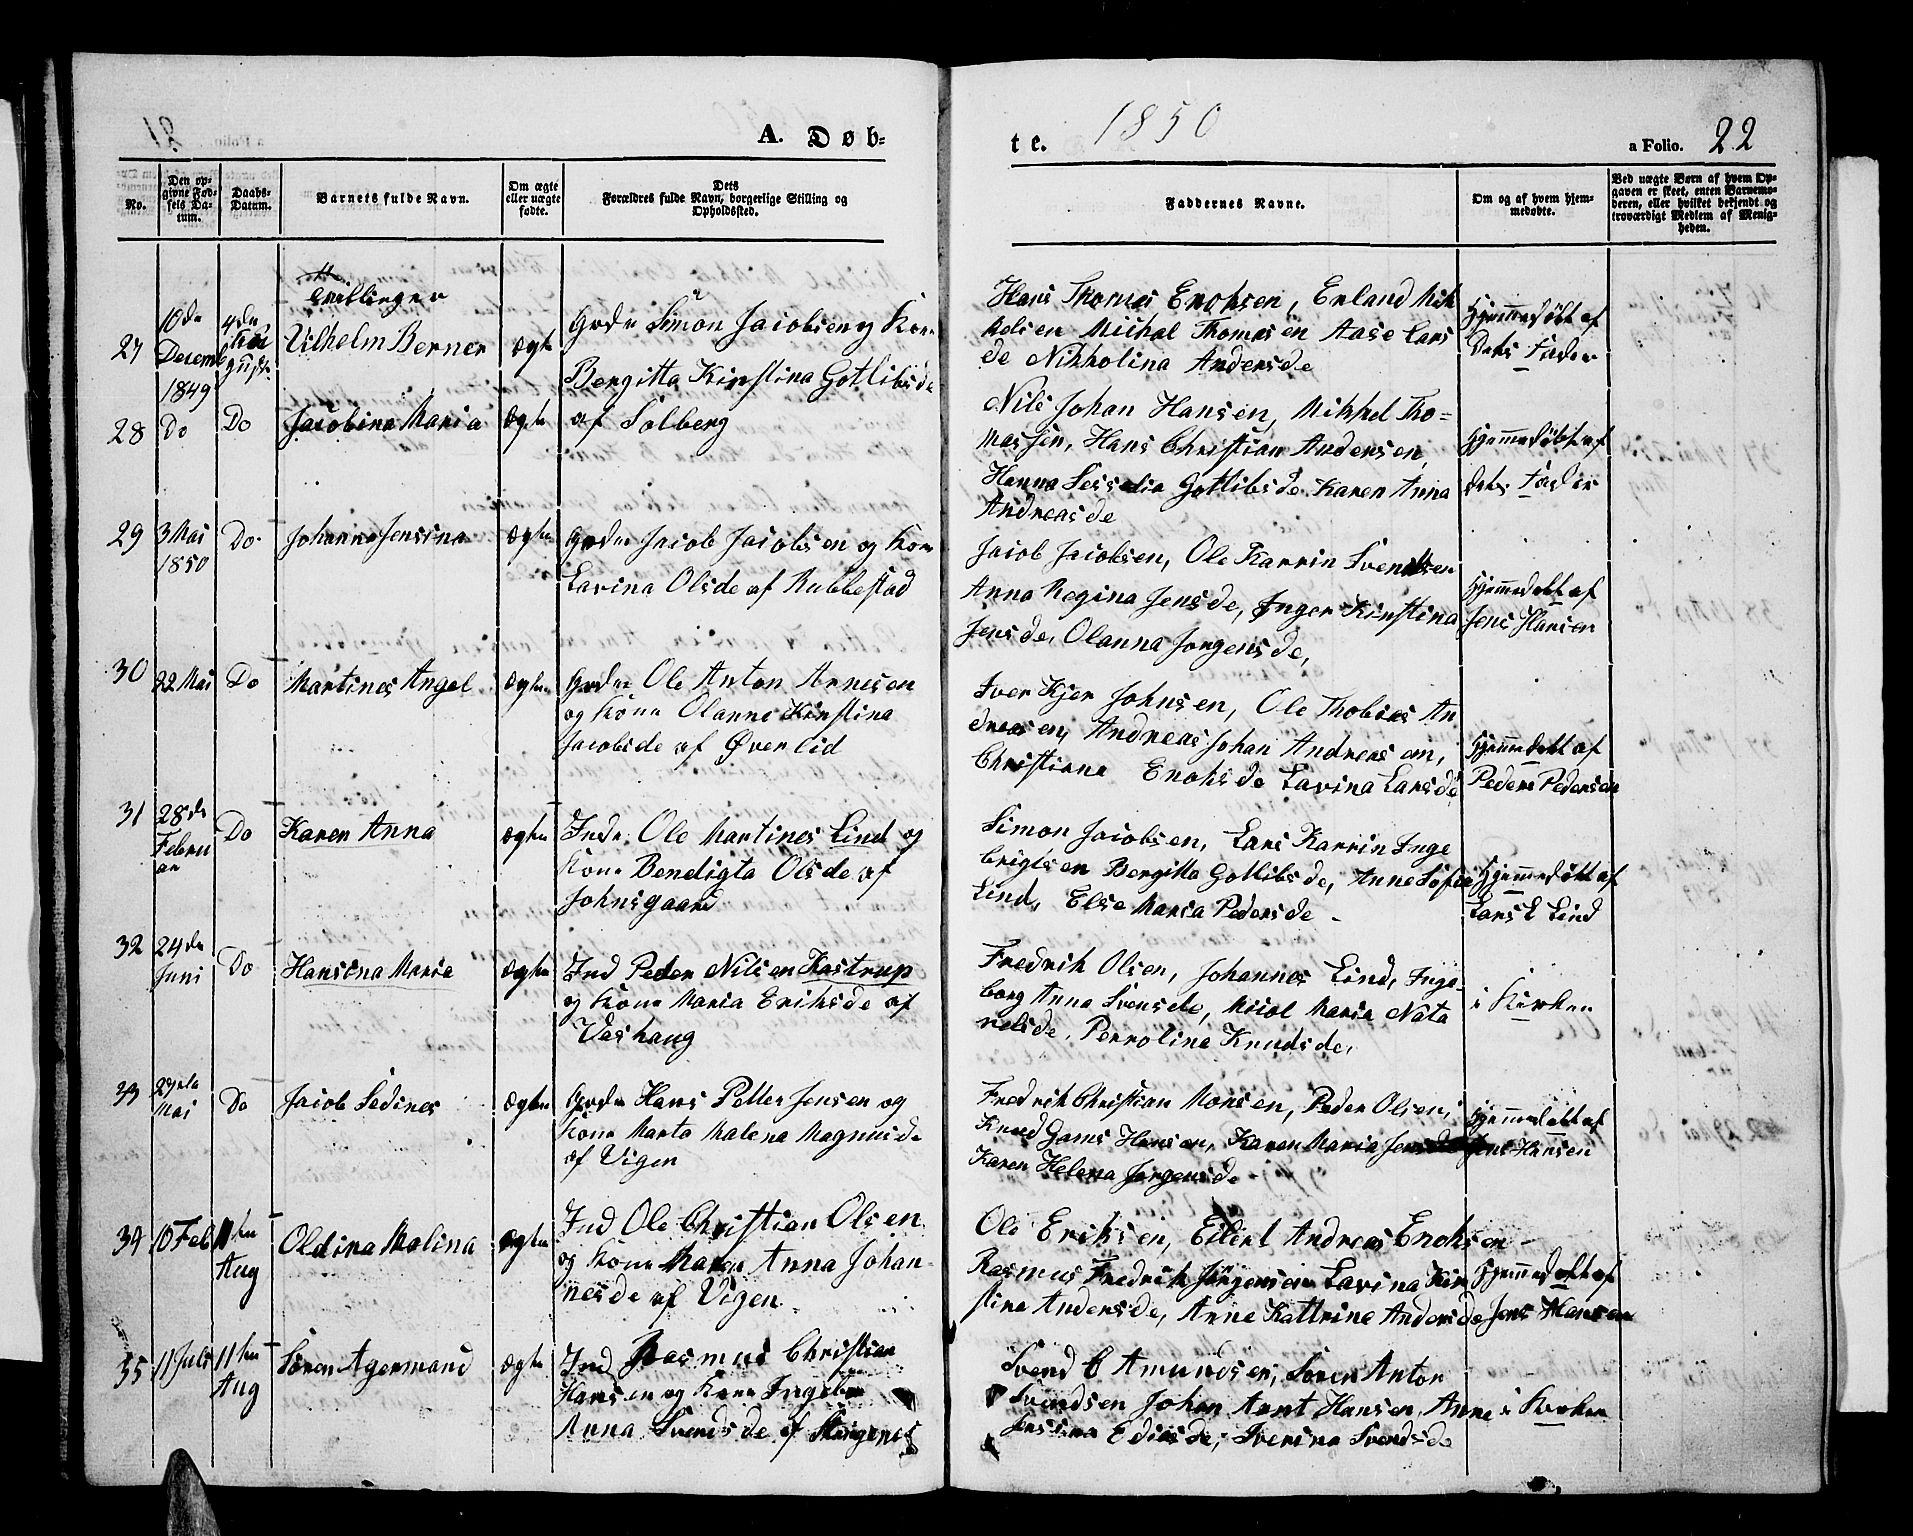 A. Døb-
te.
1850
a Folio. 22
No.
Den op-
givne Fød-
sels Da-
tum.
Daabs-
Datum.
Barnets fulde Navn.
Om ægte
eller uægte
fødte.
Dets
Forældres fulde Navn, borgerlige Stilling og
Opholdssted.
Faddernes Navne.
Om og af hvem hjem-
medøbte.
Ved uægte Børn af hvem Op-
gaven er skeet, enten Barnemo-
deren, eller hvilket bekjendt og
troværdigt Medlem af Menig-
heden.
27
10de
Decemb
1849
4de
August
Tvillinger
Vilhelm Berner
Ægte
Grdr Simon Jacobsen og Kone
Bergitta Kirstina Gotlibsde
af Solberg
Hans Thomas Enoksen, Erland Mik
kelsen Michal Thomasen Aase Lars
de Nikkolina Andersde
Hjemmedøbt af
dets Fader
28
Do
Do
Jacobina Maria
Ægte
Nils Johan Hansen, Mikkel Tho-
massen, Hans Christian Andersen,
Hanna Sesselia Gotlibsde Karen Anna
Andreasde
Hjemmedøbt af
dets Fader
29
3 Mai
1850
Do
Johanna Jensina
Ægte
Grdr Jacob Jacobsen og Kone
Lavina Olsde af Rubbestad
Jacob Jacobsen, Ole Karrin Svendsen
Anna Regina Jensde, Inger Kirstina
Jensde, Olanna Jorgensde,
Hjemmedøbt af
Jens Hansen
30
22 Mai
Do
Martines Angel
Ægte
Grdr Ole Anton Arnesen
og Kone Olanne Kirstina
Jacobsde af Øverlid
Iver Kjer Johnsen, Ole Thobias An
dreasen, Andreas Johan Andreasen,
Christiana Enoksde Lavina Larsde
Hjemmedøbt af
Peder Pedersen
31
28de
Febru
ar
Do
Karen Anna
Ægte
Indr. Ole Martines Lind og
Kone Bendigta Olsde af
Johnsgaard
Simon Jacobsen, Lars Karrin Inge
brigtsen Bergitta Gotlibsde, Anne Sofia
Lind, Else Maria Pedersde
Hjemmedøbt af
Lars L Lind
32
24de
Juni
Do
Hansina Marie
Ægte
Ind Peder Nilsen Kastrup
og Kone Maria Eriksde af
Vashaug
Fredrik Olsen, Johannes Lind, Inge-
borg Anna Svensde, Micol Marie Nata
nelsde, Perroline Knudsde,
i Kirken
33
27de
Mai
Do
Jacob Sedines
Ægte
Grdr Hans Petter Jensen og
Kone Marta Malena Magnusde
af Vigen
Fredrik Christian Monsen, Peder Olsen,
Knud Gams Hansen, Karen Maria Jensde
Karen Helena Jørgensde
Hjemmedøbt af
Jens Hansen
34
10 Feb
11te
Aug
Oldina Malina
Ægte
Ind Ole Christian Olsen
og Kone Maren Anna Johan-
nesde af Vigen
Ole Eriksen, Eilert Andreas Enoksen
Rasmus Fredrik Jørgensen Lavina Kir
stina Andersde, Anne Kattrina Andersde
Hjemmedøbt af
Jens Hansen
35
11 Juli
11te
Aug
Sören Agermand
Ægte
Ind Rasmus Christian
Hansen og Kone Ingeborg
Anna Svendsde af Skogenes
Svend C Amundsen, Soren Anton
Svendsen Johan Arnt Hansen, Anne
Jensina Ediasde, Iverina Svendsde
i Kirken